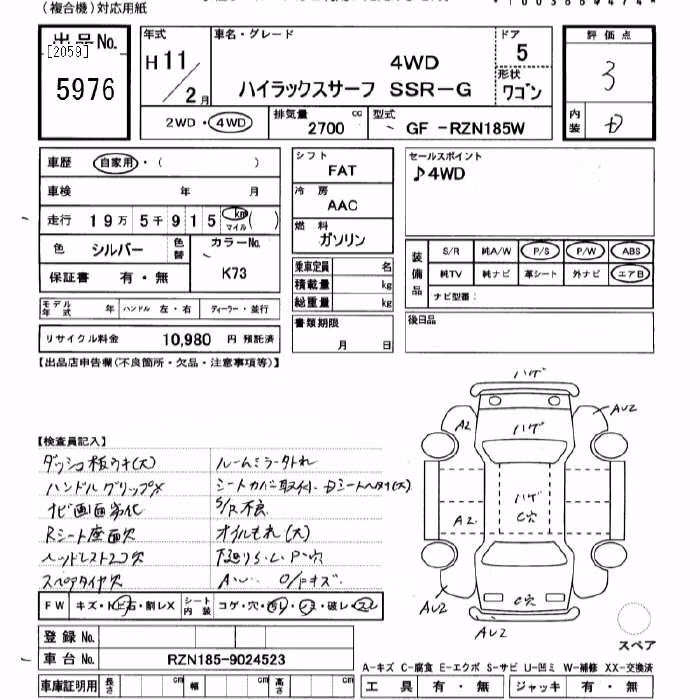 (複合機)対応用紙
出品No.
[2059]
5976
年式
H 11
2 月
車名・グレード
4WD
ハイラックスサーフ SSR-G
ドア
5
形状
ワゴン
評価点
3
内装
2WD・4WD
排気量
2700 cc
型式
GF -RZN185W
車歴 自家用・( )
車検 年 月
走行 19万 5千 9 1 5 km マイル ( )
色 シルバー 色替
カラーNo.
K73
保証書 有・無
モデル年式 年 ハンドル 左・右 ディーラー・並行
リサイクル料金 10,980 円 預託済
シフト
FAT
冷房
AAC
燃料
ガソリン
乗車定員 名
積載量 kg
総重量 kg
書類期限
月 日
セールスポイント
♪4WD
装備品
S/R 純A/W P/S P/W ABS
純TV 純ナビ 革シート 外ナビ エアB
ナビ型番:
後日品
【出品店申告欄(不良箇所・欠品・注意事項等)】
【検査員記入】
ダッシュ板ウキ(大)
ハンドルグリップX
ナビ画面劣化
Rシート座面穴
ヘッドレスト2コ穴
スペアタイヤ欠
ルームミラー外れ
シートカバー取付
S/R不良
オイルもれ(大)
F W キズ・トビ石・割レX
シート内装
コゲ・穴・
・破レ・
登録 No.
車台 No. RZN185-9024523
車庫証明用 長さ cm 幅 cm 高さ cm
ハゲ
AU2
A2
ハゲ
ハゲ
C穴
A2
AU2
AU2
C穴
AU2
スペア
A-キズ C-腐食 E-エクボ S-サビ U-凹ミ W-補修 XX-交換済
工具 有・無 ジャッキ 有・無